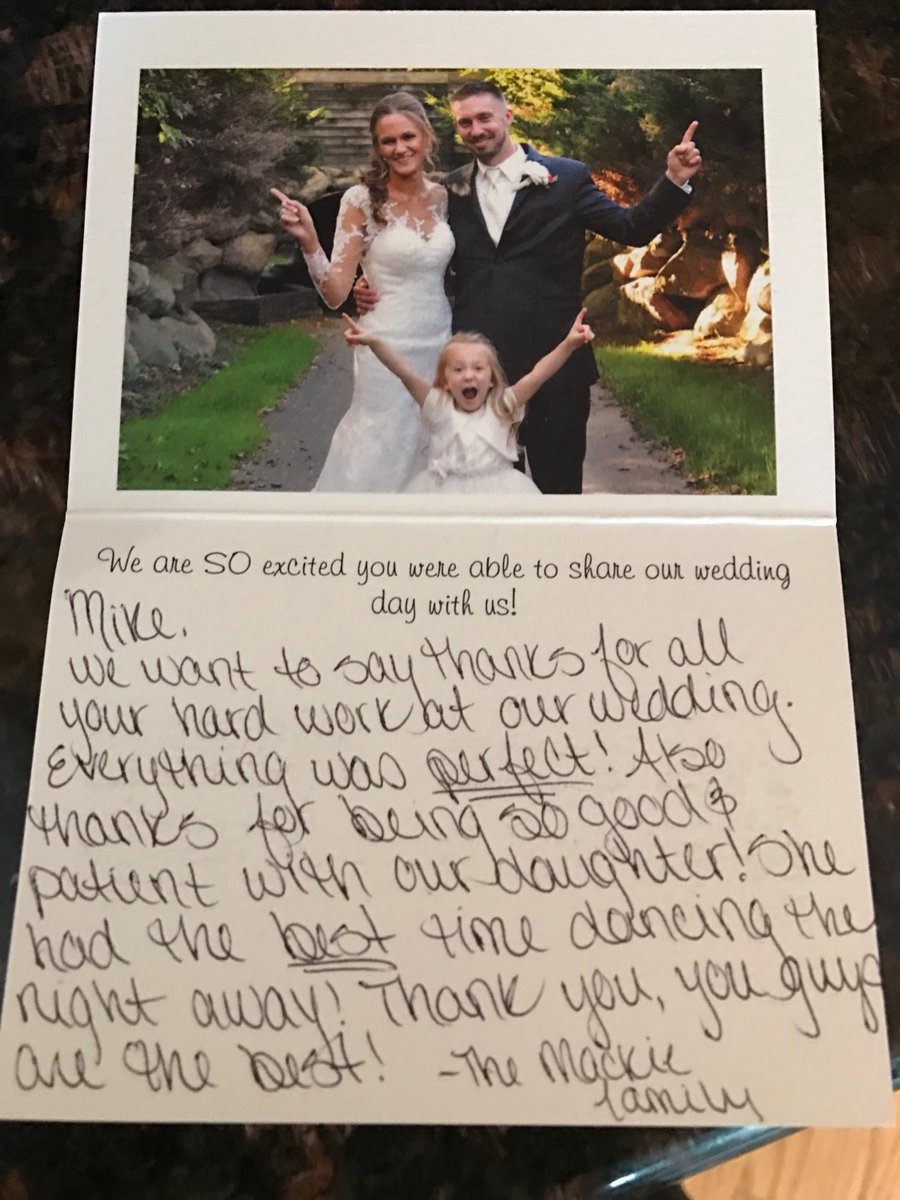 We are SO excited you were able to share our wedding
day with us!
Mike,
we want to say thanks for all
your hard work at our wedding.
Everything was perfect! Also
thanks for being so good &
patient with our daughter! She
had the best time dancing the
night away! Thank you, you guys
are the best! -The Mackie
family